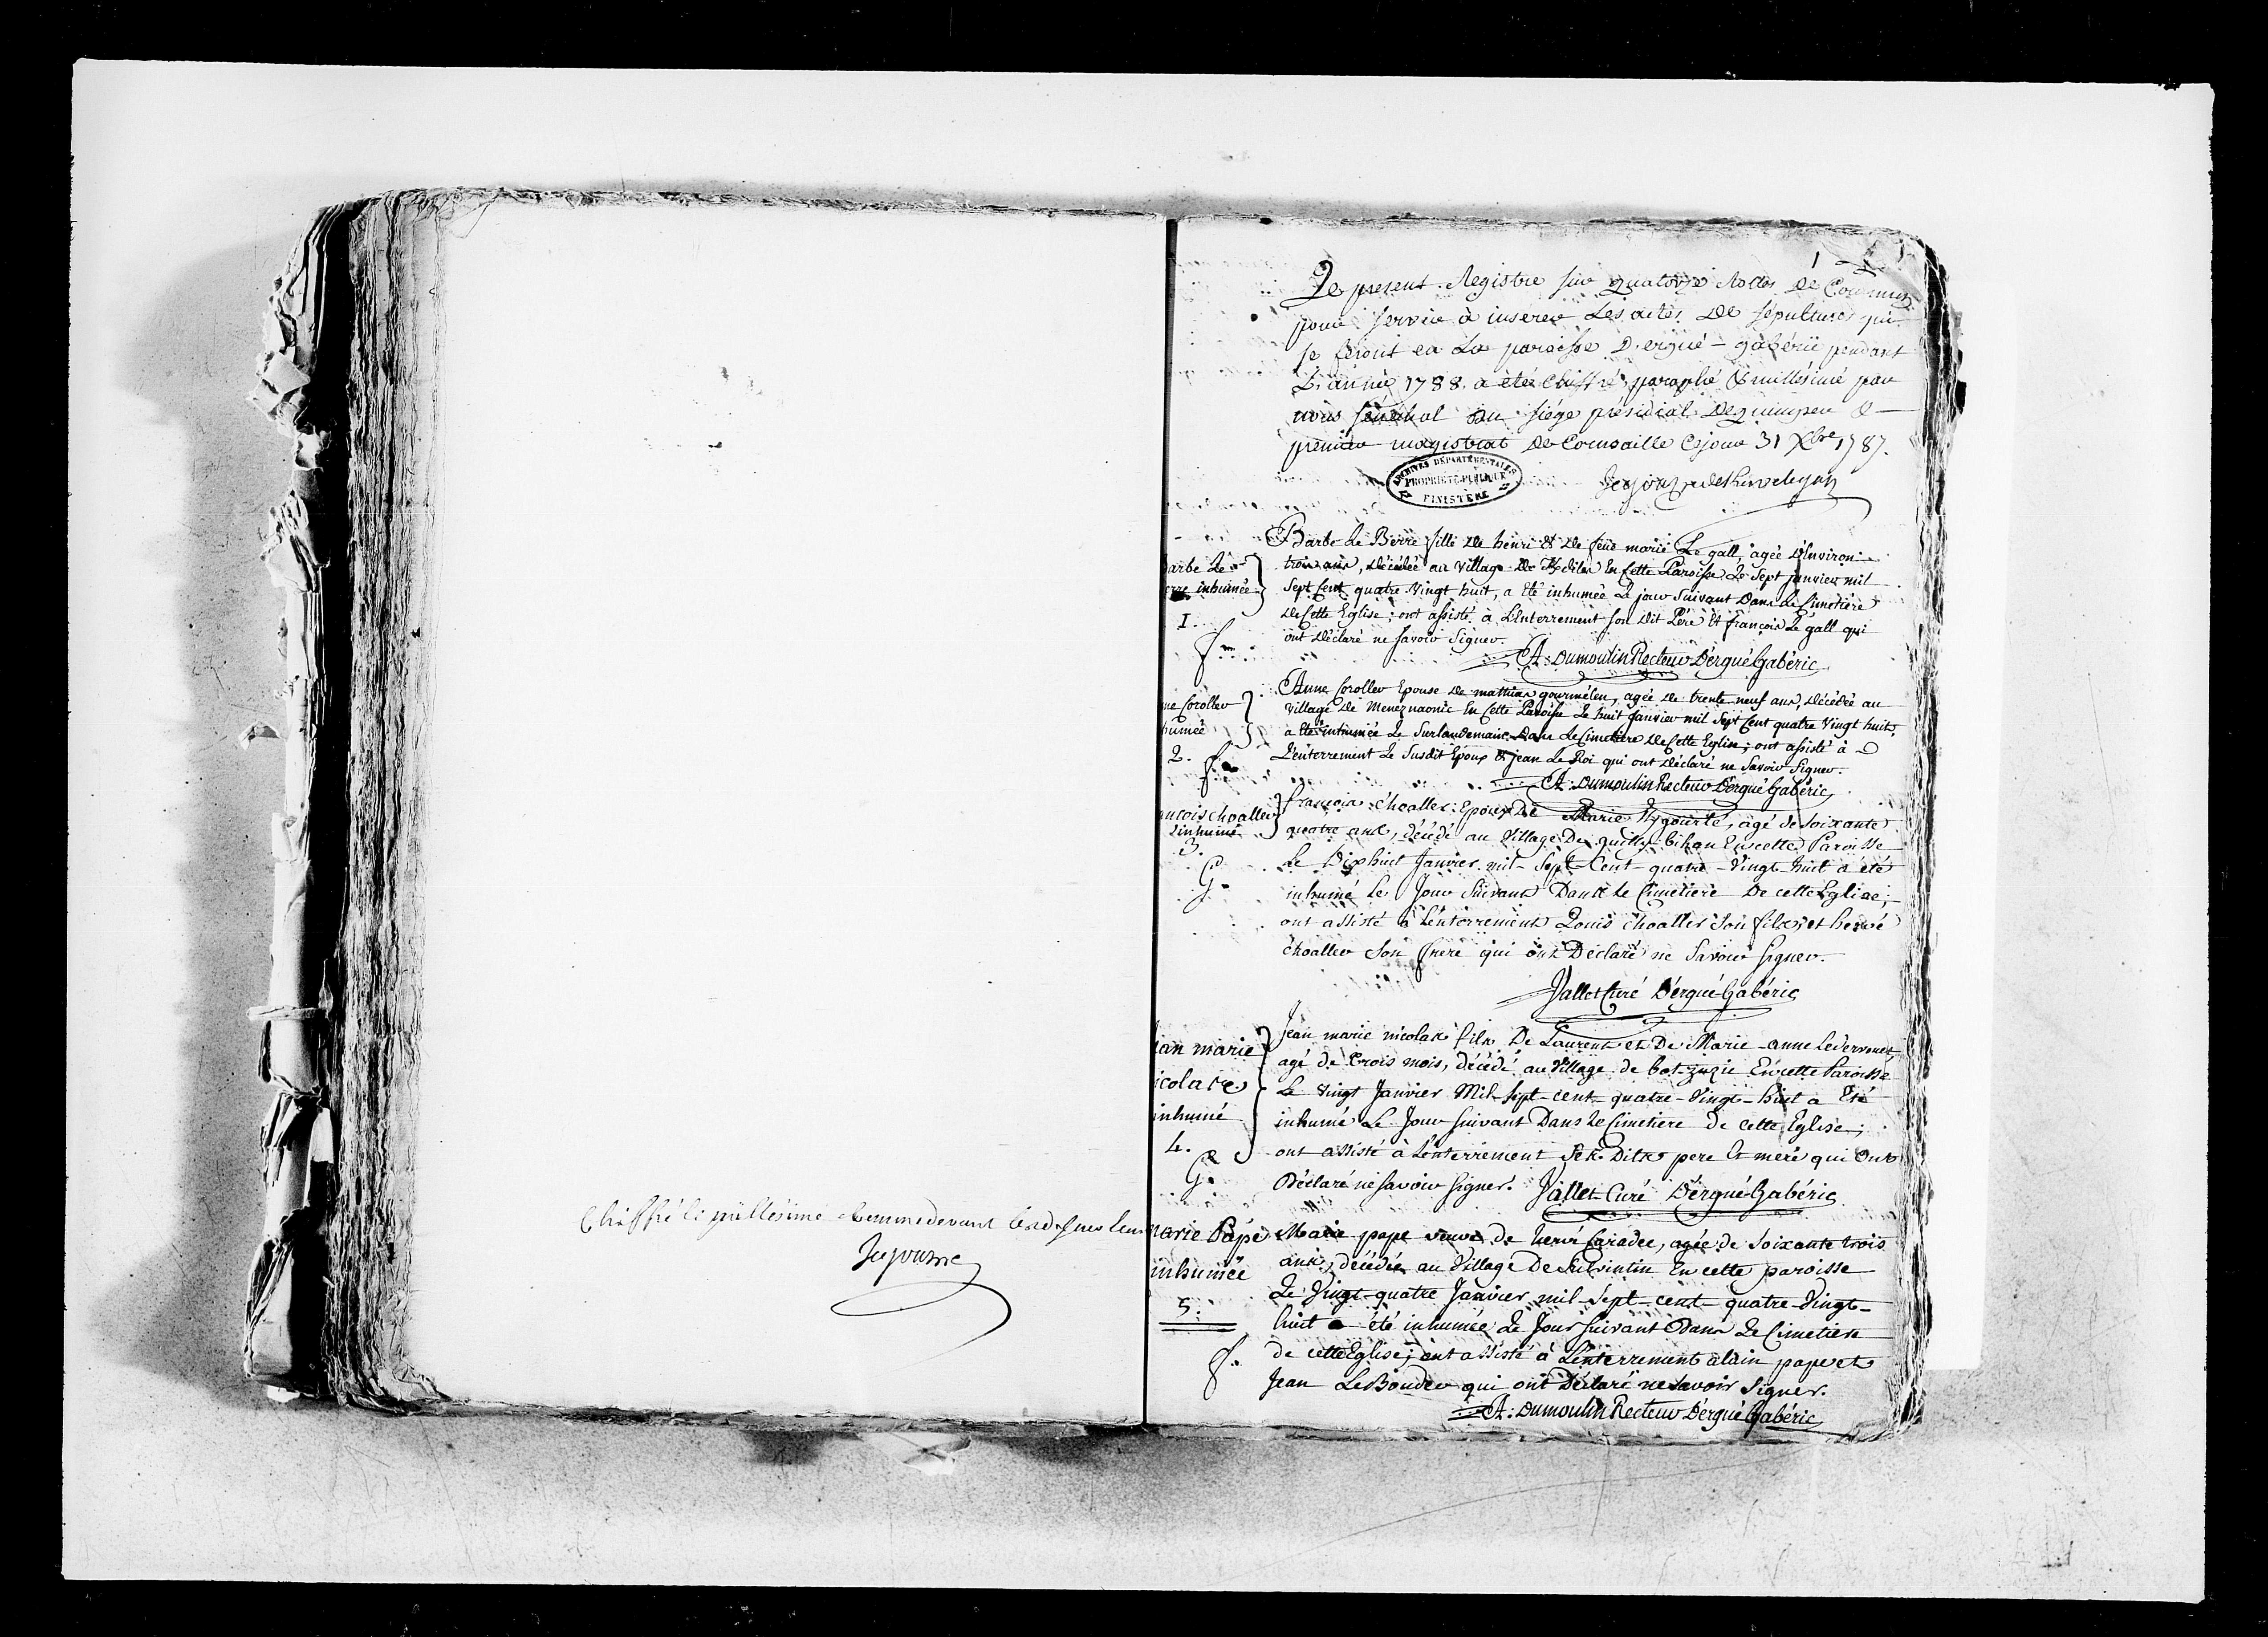 Chiffré et millésimé comme devant
Jejourne
1
Le present Registre sur quatorze Rolles de Commun
pour servir à inserer les actes de sépultures qui
se feront en La paroisse D'ergué-gabéric pendant
L'année 1788. a été Chiffré, paraphé & millésimé par
nous sénéchal au siége présidial de quimper &
premier magistrat de Cornouaille ce jour 31 Xbre 1787.
ARCHIVES DÉPARTEMENTALES
PROPRIÉTÉ PUBLIQUE
FINISTÈRE
arbe Le
erre inhumée
1.
f.
Barbe Le Berre fille de henri & de feue marie Le gall, agée d'Environ
trois ans, décédée au village de En Cette Paroisse Le Sept janvier mil
Sept Cent quatre Vingt huit, a Eté inhumée Le jour Suivant Dans Le Cimetiére
de Cette Eglise; ont assisté à L'Enterrement son dit Pére Et françois Le gall qui
ont déclaré ne savoir Signer.
A: Dumoulin Recteur D'ergué Gabéric
ne Coroller
humée
2. f.
Anne Coroller Epouse de mathias gourmélen, agée de trente neuf ans, décédée au
village de Meneznaonic En Cette Paroisse Le huit Janvier mil Sept Cent quatre Vingt huit,
a Eté inhumée Le Surlendemain Dans Le Cimetiére de Cette Eglise; ont assisté à
L'énterrement Le Susdit Epoux & jean Le Roi qui ont déclaré ne Savoir Signer.
A: Dumoulin Recteur D'ergué Gabéric
ancois choaller
inhumé
3.
G.
françois choaller Epoux De Marie agé de soixante
quatre ans, décédé au Village De quilly-bihan En cette Paroisse
Le Dix huit Janvier mil-Sept-Cent-quatre-Vingt huit a été
inhumé Le Jour Suivant Dans Le Cimetiere De cette Eglise;
ont assisté à L'enterrement Louis choaller Son fils, et hervé
choaller Son frere qui ont Déclaré ne Savoir Signer.
Jallet Curé D'ergué-Gabéric
ean marie
icolas
inhumé
4.
G.
Jean marie nicolas fils De Laurent et De Marie-anne
agé de trois mois, décédé au Village de En cette Paroisse
Le vingt Janvier Mil-Sept-cent-quatre-Vingt-huit a Eté
inhumé Le Jour suivant Dans Le Cimetiere de cette Eglise;
ont assisté à L'enterrement Ses Dits pere Et mere qui ont
Déclaré ne savoir signer. Jallet Curé D'ergué-Gabéric
marie Pape
inhumée
5.
f.
Marie pape veuve de hervé Caradec, agée de Soixante trois
ans, décédée au Village De En cette paroisse
Le Vingt-quatre Janvier mil-Sept-cent-quatre-Vingt-
huit a été inhumée Le Jour Suivant Dans Le Cimetiere
de cette Eglise; ont assisté à L'enterrement alain pape et
Jean Le Bouder qui ont Déclaré ne Savoir Signer.
A: Dumoulin Recteur D'ergué Gabéric